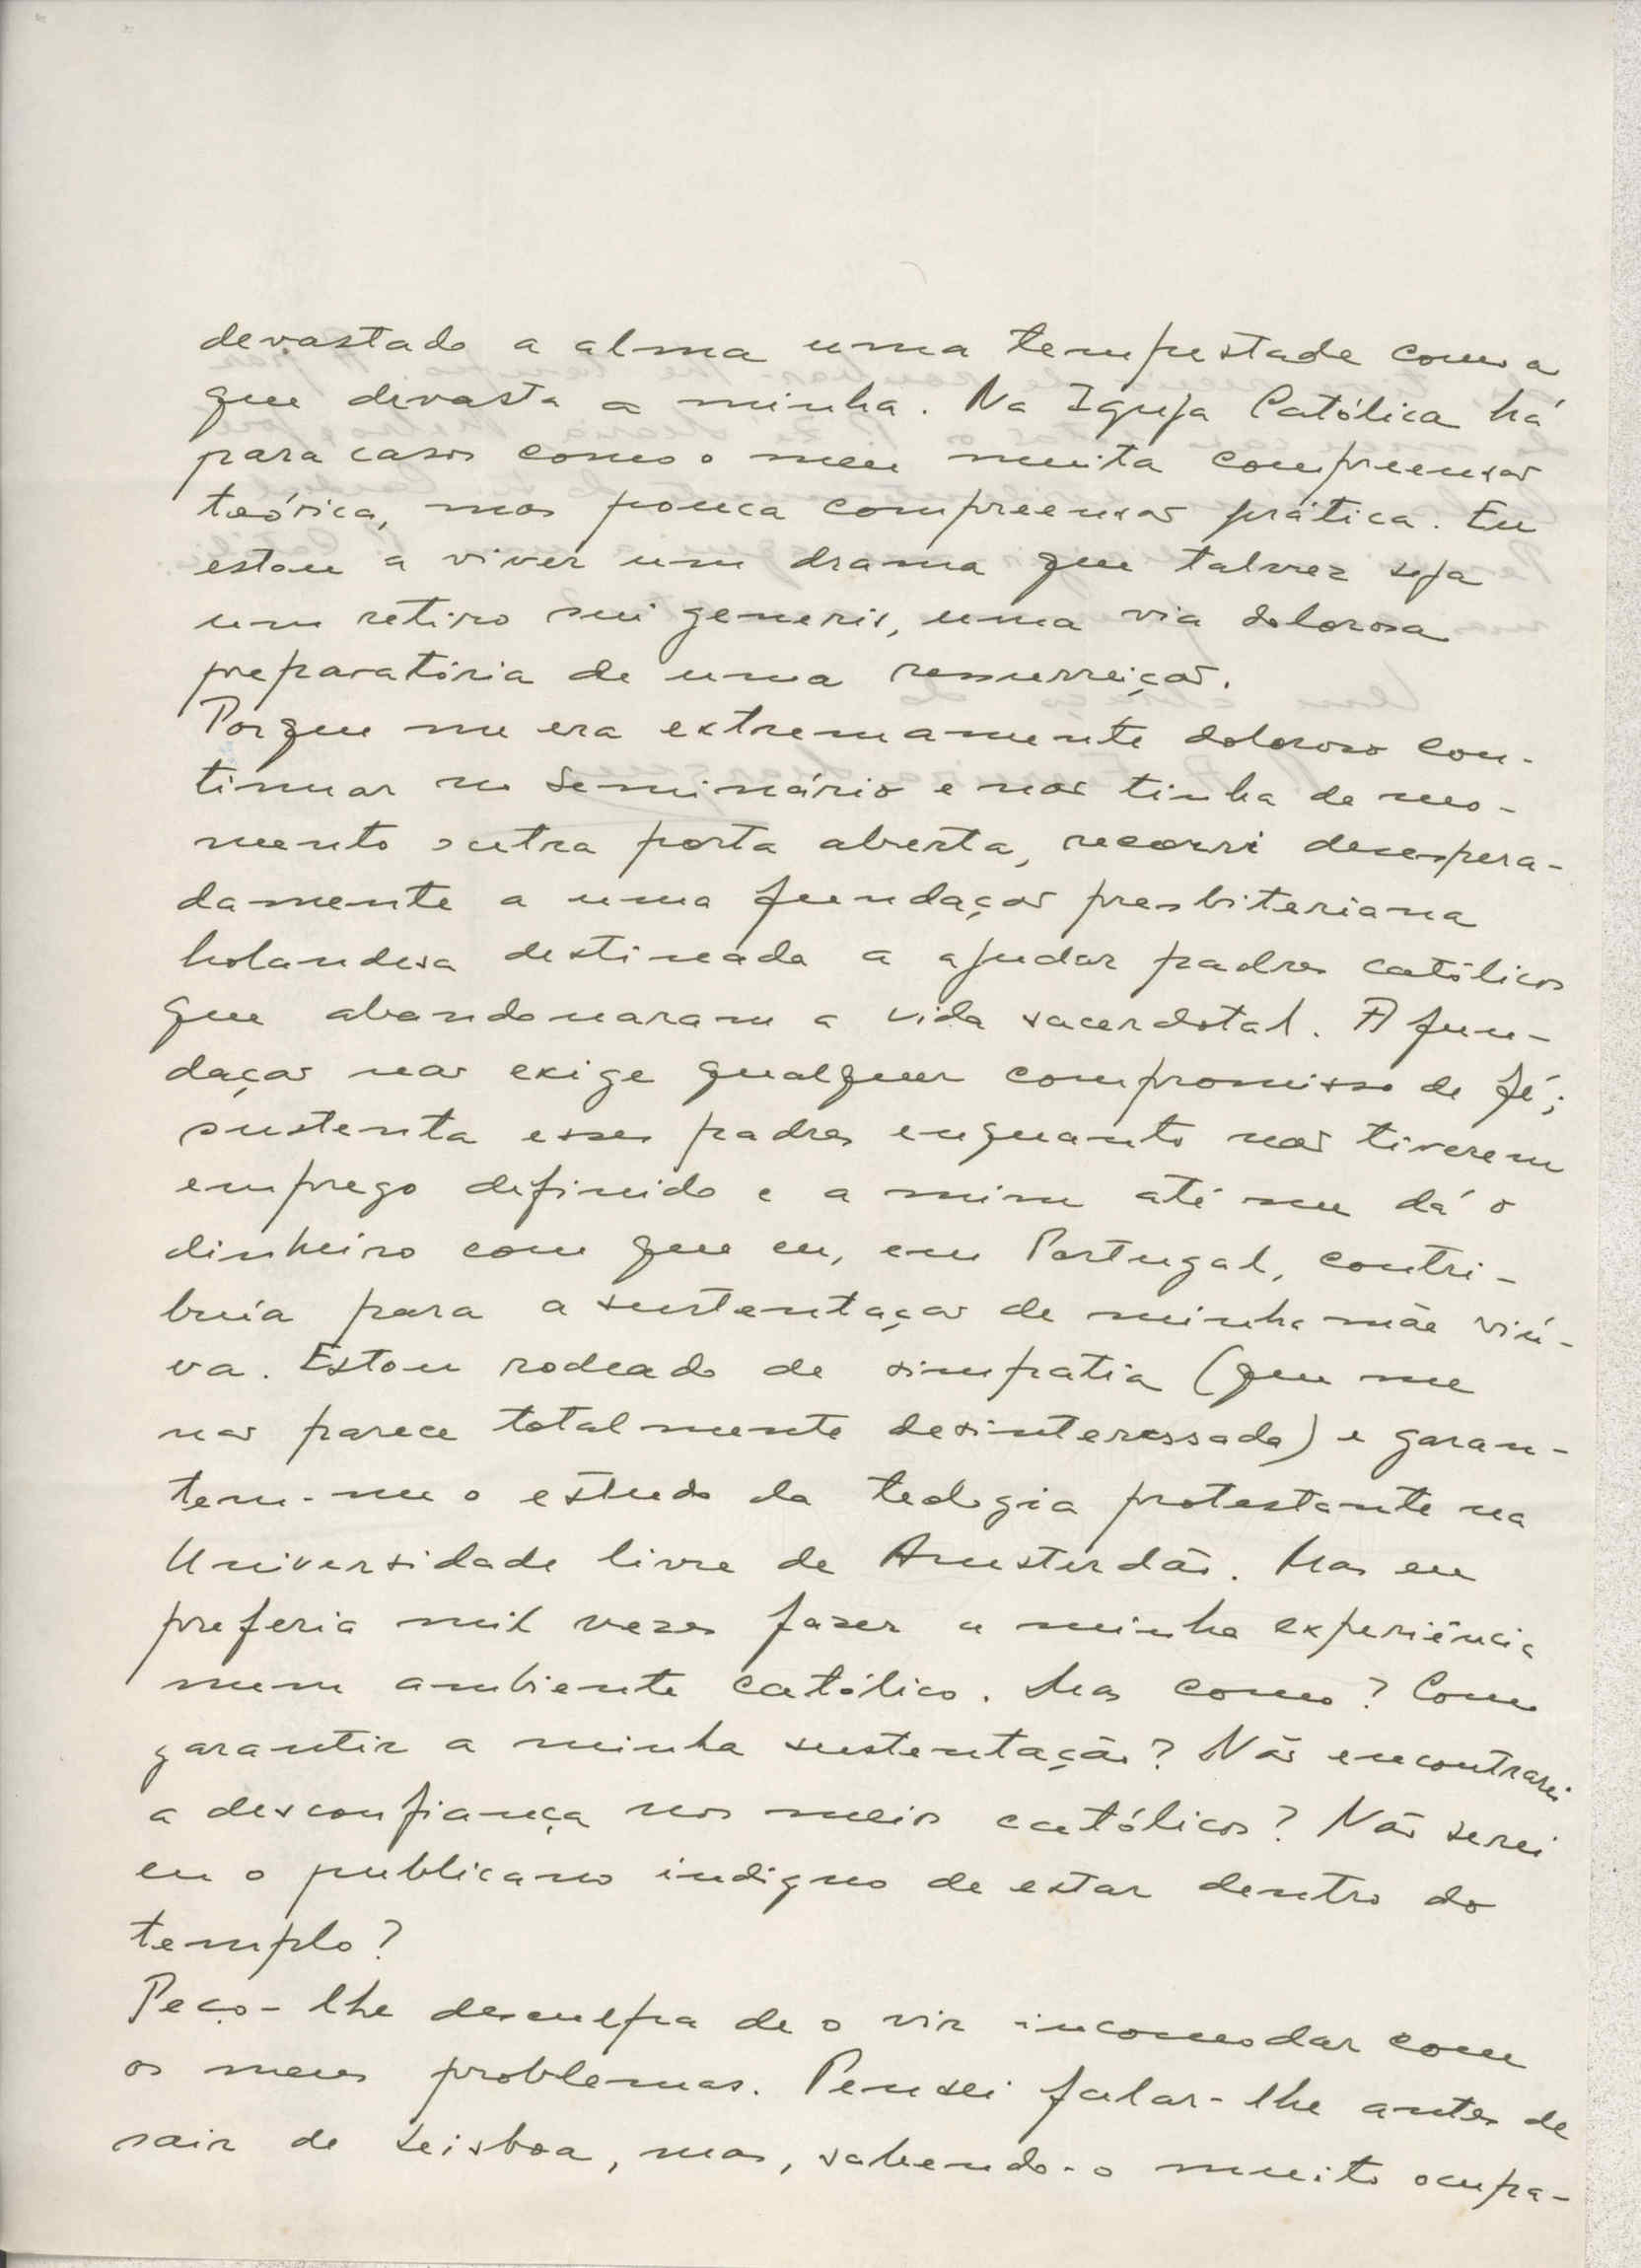 devastado a alma uma tempestade como a
que devasta a minha. Na Igreja Católica há
para casos como o meu muita compreensão
teórica, mas pouca compreensão prática. Eu
estou a viver um drama que talvez seja
um retiro sui generis, uma via dolorosa
preparatória de uma ressurreição.
Porque me era extremamente doloroso con-
tinuar no Seminário e não tinha de mo-
mento outra porta aberta, recorri desespera-
damente a uma fundação presbiteriana
holandesa destinada a ajudar padres católicos
que abandonaram a vida sacerdotal. A fun-
dação não exige qualquer compromisso de fé;
sustenta esses padres enquanto não tiverem
emprego definido e a mim até me dá o
dinheiro com que eu, em Portugal, contri-
buía para a sustentação de minha mãe viú-
va. Estou rodeado de simpatia (que me
não parece totalmente desinteressada) e garan-
tem-me o estudo da teologia protestante na
Universidade livre de Amsterdão. Mas eu
preferia mil vezes fazer a minha experiência
num ambiente católico. Mas como? Como
garantir a minha sustentação? Não encontrarei
a desconfiança nos meios católicos? Não serei
eu o publicano indigno de estar dentro do
templo?
Peço-lhe desculpa de o vir incomodar com
os meus problemas. Pensei falar-lhe antes de
sair de Lisboa, mas, sabendo-o muito ocupa-